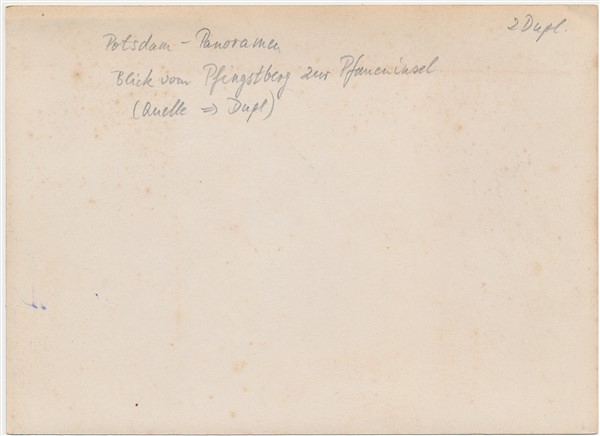 2 Dupl.
Potsdam - Panoramen
Blick vom Pfingstberg zur Pfaueninsel
(Quelle => Dupl)